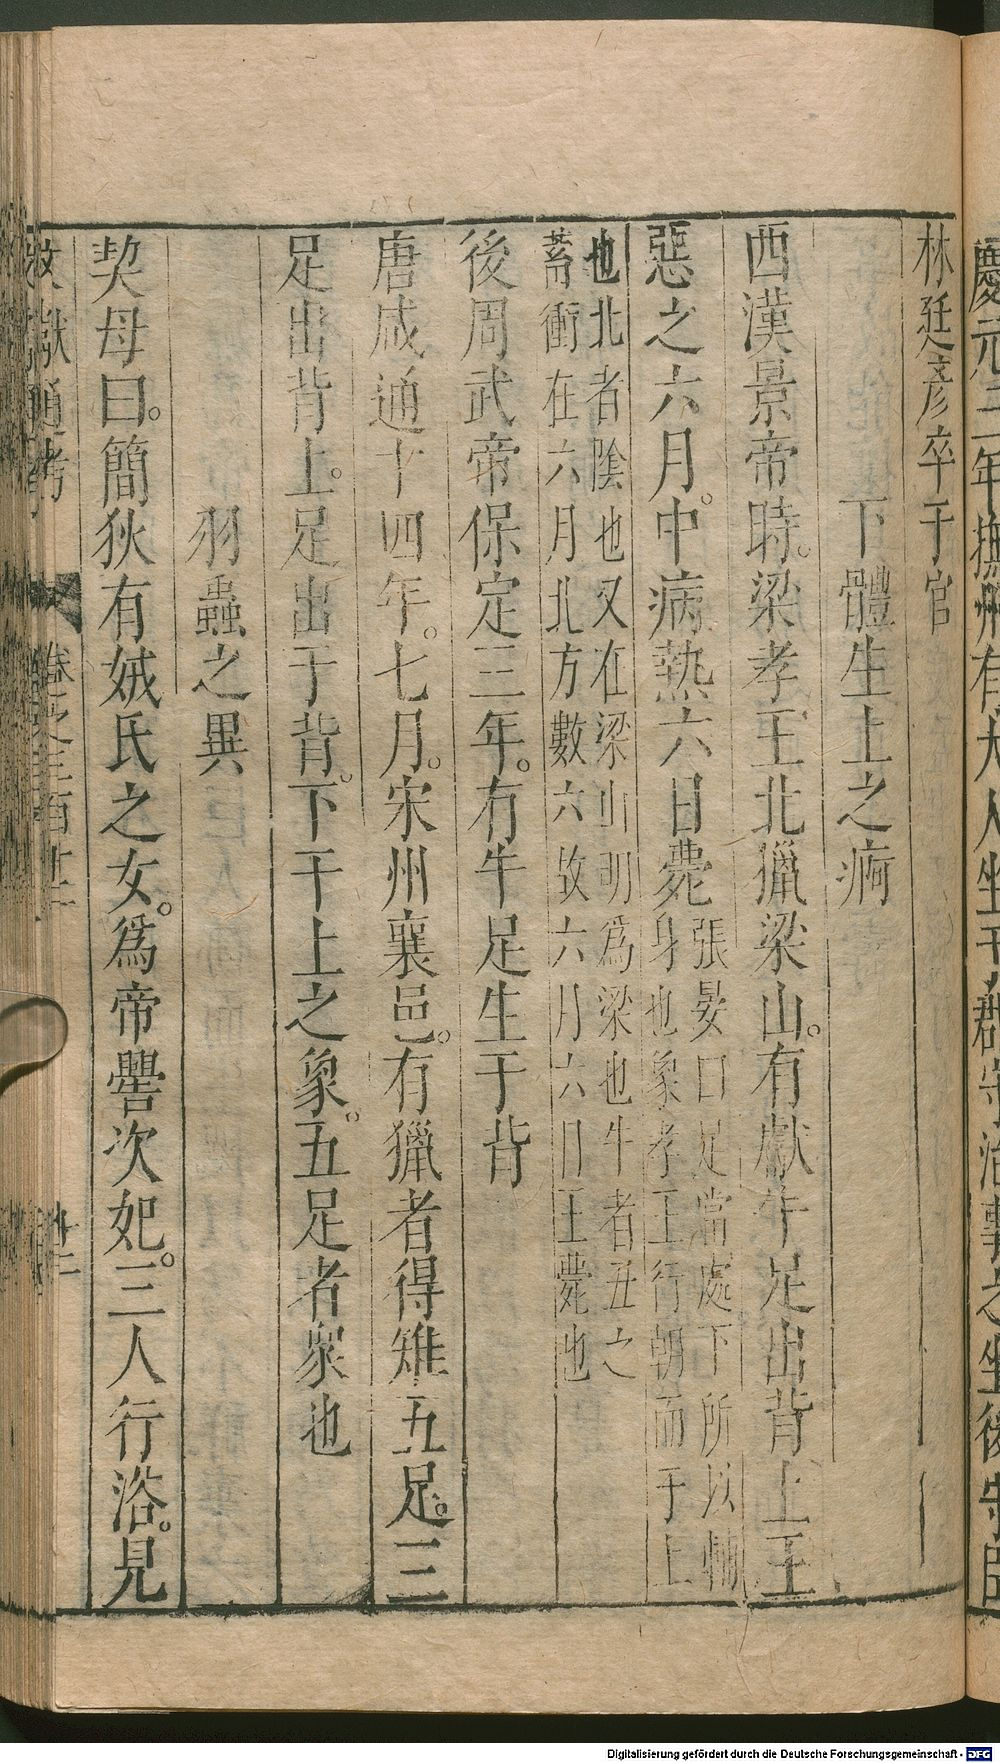 慶元三年撫州有犬人坐于郡守治事之坐後守臣
林廷彥卒于官
下體生上之痾
西漢景帝時。梁孝王北獵梁山。有獻牛足出背上王
惡之六月。中病熱六日薨
張晏曰足當處下所以輔
身也象孝王行朝而于上
也北者陰也又在梁山明爲梁也牛者丑之
畜衝在六月北方數六故六月六日王薨也
後周武帝保定三年。有牛足生于背
唐咸通十四年。七月。宋州襄邑。有獵者得雉五足。三
足出背上。足出于背。下干上之象。五足者衆也
羽蟲之異
契母曰。簡狄有娀氏之女。爲帝嚳次妃。三人行浴。見
文獻通考
卷之三百十一
Digitalisierung gefördert durch die Deutsche Forschungsgemeinschaft - DFG